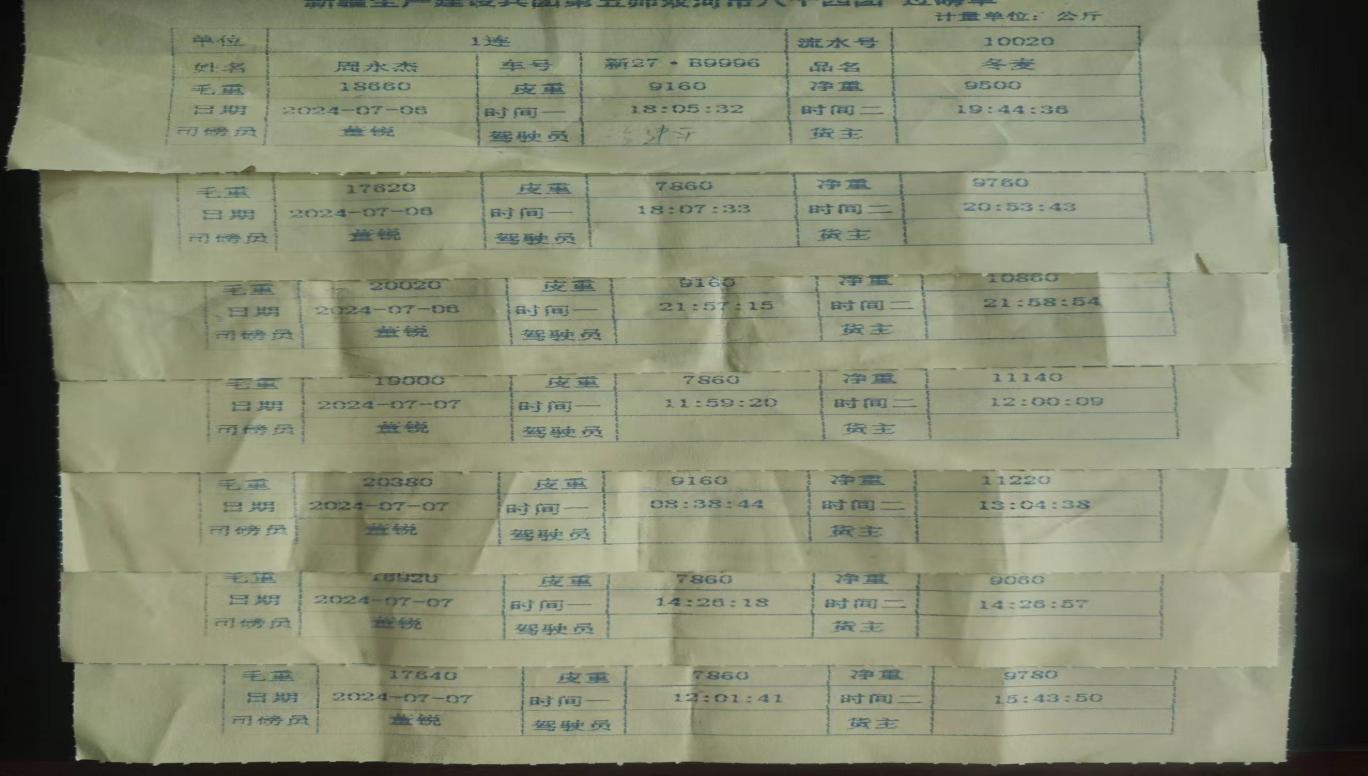 新疆生产建设兵团第五师双河市八十四团 过磅单
计量单位：公斤
单位 1连 流水号 10020
姓名 周永杰 车号 新27·B9996 品名 冬麦
毛重 18660 皮重 9160 净重 9500
日期 2024-07-06 时间一 18:05:32 时间二 19:44:36
司磅员 董锐 驾驶员 货主
毛重 17620 皮重 7860 净重 9760
日期 2024-07-06 时间一 18:07:33 时间二 20:53:43
司磅员 董锐 驾驶员 货主
毛重 20020 皮重 9160 净重 10860
日期 2024-07-06 时间一 21:57:15 时间二 21:58:54
司磅员 董锐 驾驶员 货主
毛重 19000 皮重 7860 净重 11140
日期 2024-07-07 时间一 11:59:20 时间二 12:00:09
司磅员 董锐 驾驶员 货主
毛重 20380 皮重 9160 净重 11220
日期 2024-07-07 时间一 08:38:44 时间二 13:04:38
司磅员 董锐 驾驶员 货主
毛重 16920 皮重 7860 净重 9060
日期 2024-07-07 时间一 14:26:18 时间二 14:26:57
司磅员 董锐 驾驶员 货主
毛重 17640 皮重 7860 净重 9780
日期 2024-07-07 时间一 12:01:41 时间二 15:43:50
司磅员 董锐 驾驶员 货主